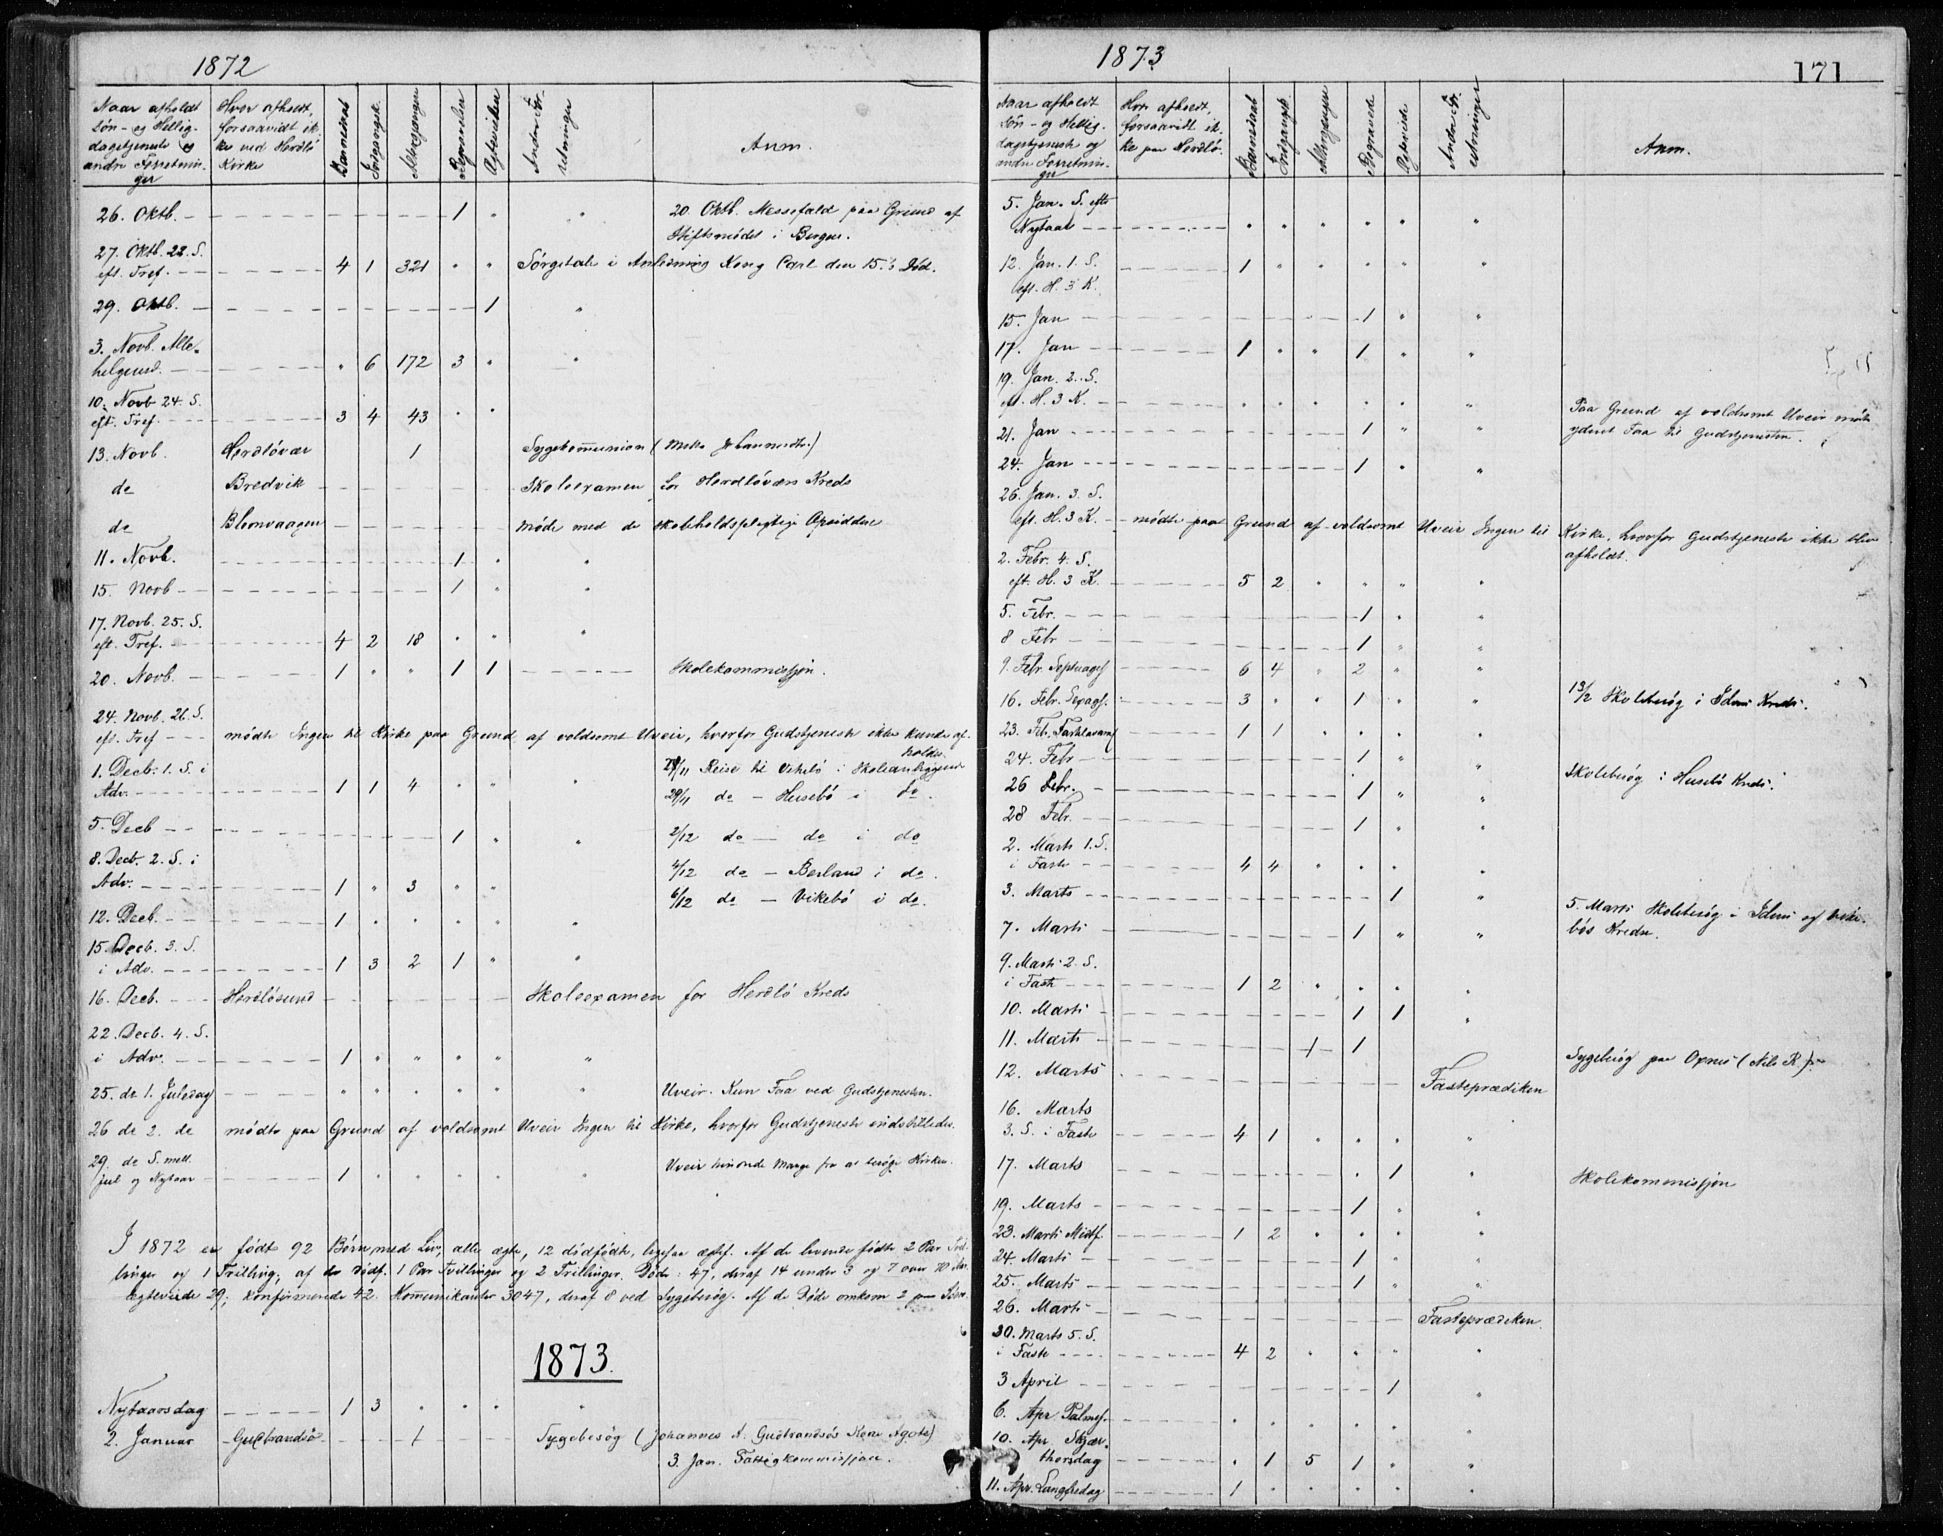 1872
Naar afholdt Søn- og Hellig-dagstjeneste og andre Forretnin-ger | Hvor afholdt, forsaavidt ik-ke ved Herdlø Kirke | Barnedaab | Introd. | Altergjenger | Begravelser | Ægtevielser | Andre For-retninger | Anm.
26. Oktb. – 1 " " 20. Oktb. Messefald paa Grund af
Stiftsmødet i Bergen.
27. Oktb. 22. S.
eft. Tref. – 4 1 321 " " Sørgetale i Anledning Kong Carl den 15.s Død.
29. Oktb. – 1 "
3. Novb. Alle-
helgensd. – " 6 172 3 " "
10. Novb 24. S.
eft. Tref. – 3 4 43 " "
13. Novb. Herdløvær 1 Sygekommunion
do Bredvik – Skoleexamen for Herdløværs Kreds
do Blomvaagen – Møde med de skoleholdspligtige Opsiddere
11. Novb. – 1 " "
15. Novb – 1 " "
17. Novb. 25. S.
eft. Tref. – 4 2 18 " " "
20. Novb. – 1 " " 1 1 – Skolekommissjon.
24. Novb. 26. S.
eft. Tref – mødte Ingen til Kirke paa Grund af voldsomt Uveir, hvorfor Gudstjeneste ikke kunde af-
holdes.
1. Decb. 1. S. i
Adv. – 1 1 4 " " " 28/11 Reise til Vikebø i Skoleanliggende
29/11 do – Husebø i do.
5. Decb – 1 " " 2/12 do – do i do
8. Decb. 2. S. i
Adv. – 1 " 3 " " 4/12 do – Berland i do.
6/12 do – Vikebø i do.
12. Decb. – 1 " " " " "
15 Decb. 3. S.
i Adv. – 1 3 2 1 " "
16. Decb. – Herdløsund – Skoleexamen for Herdlø Kreds
22. Decb. 4. S.
i Adv. – 1 " " " " "
25. do 1. Juledag " " " " " Uveir. Kun Faa ved Gudstjenesten.
26 do 2. do mødte paa Grund af voldsomt Uveir Ingen til Kirke, hvorfor Gudstjeneste indstilledes.
29. do S. mell.
Jul og Nytaar – 1 " " " " " Uveir hindrede Mange fra at besøge Kirken.
I 1872 er født 92 Børn med Liv, alle ægte, 12 dødfødte, ligesaa ægtef. Af de levende fødte 2 Par Tvil-
linger og 1 Trilling, af de dødf. 1 Par Tvillinger og 2 Trillinger. Døde: 47, deraf 14 under 3 og 7 over 70 Aar.
Ægteviede 29; Konfirmerede 42. Kommunikanter 3047, deraf 8 ved Sygebesøg. Af de Døde omkom 2 paa Søen.
1873.
Nytaarsdag – 1 3 " " " "
2. Januar – Gudbrandsø – 1 Sygebesøg (Johannes A. Gudbrandsøs Kone Agote)
3. Jan. Fattigkommissjon.
1873
171
Naar afholdt Søn- og Hellig-dagstjeneste og andre Forretnin-ger | Hvor afholdt, forsaavidt ik-ke paa Herdlø. | Barnedaab | Introd. | Altergjengere | Begravede | Ægteviede | Andre For-retninger | Anm.
5. Jan. S. efter
Nytaar – " " " " " "
12. Jan. 1. S.
eft. H. 3 K. – 1 " " " " "
15. Jan – 1 " "
17. Jan – 1 " " 1 " "
19. Jan. 2. S.
eft. H. 3 K. – " " " " " " Paa Grund af voldsomt Uveir mødte
yderst Faa til Gudstjenesten.
21. Jan – 1 " "
24. Jan – 1 " "
26. Jan. 3. S.
eft. H. 3 K. – mødte paa Grund af voldsomt Uveir Ingen til Kirke, hvorfor Gudstjeneste ikke blev
afholdt.
2. Febr. 4. S.
eft. H. 3 K. – 5 2 " " " "
5. Febr. – 1 "
8 Febr – 1 " "
9. Febr. Septuages – 6 4 " 2 " "
16. Febr. Sexages. – 3 " " 1 " " 13/2 Skolebesøg i Kreds.
23. Feb. Fastelavns – 1 1 " " " "
24. Febr – 1 " "
26 Febr. – 1 " " Skolebesøg i Husebø Kreds.
28 Febr. – 1 " "
2. Marts 1. S.
i Faste – 4 4 " " " "
3. Marts – 1 "
7. Marts – 1 " " 5. Marts Skolebesøg i og Vike-
bøs Kredse.
9. Marts 2. S.
i Faste – 1 2 " " " "
10. Marts – 1 1 "
11. Marts – 1 1 Sygebesøg paa
12. Marts – Fasteprædiken
16. Marts
3. S. i Faste – 4 1 " " " "
17. Marts – " 1 " Skolekommissjon
19. Marts – 1 " "
23. Marts Midf. – 1 2 " " " "
24. Marts – 1 " "
25. Marts – 1 " "
26. Marts – Fasteprædiken.
30. Marts 5. S.
i Faste – 4 2 " " " "
3 April – 1 "
6. Apr. Palmes. – " " " " " "
10. Apr. Skjær-
thorsdag – " 1 5 1 " "
11. Apr. Langfredag – 1 " " " " "